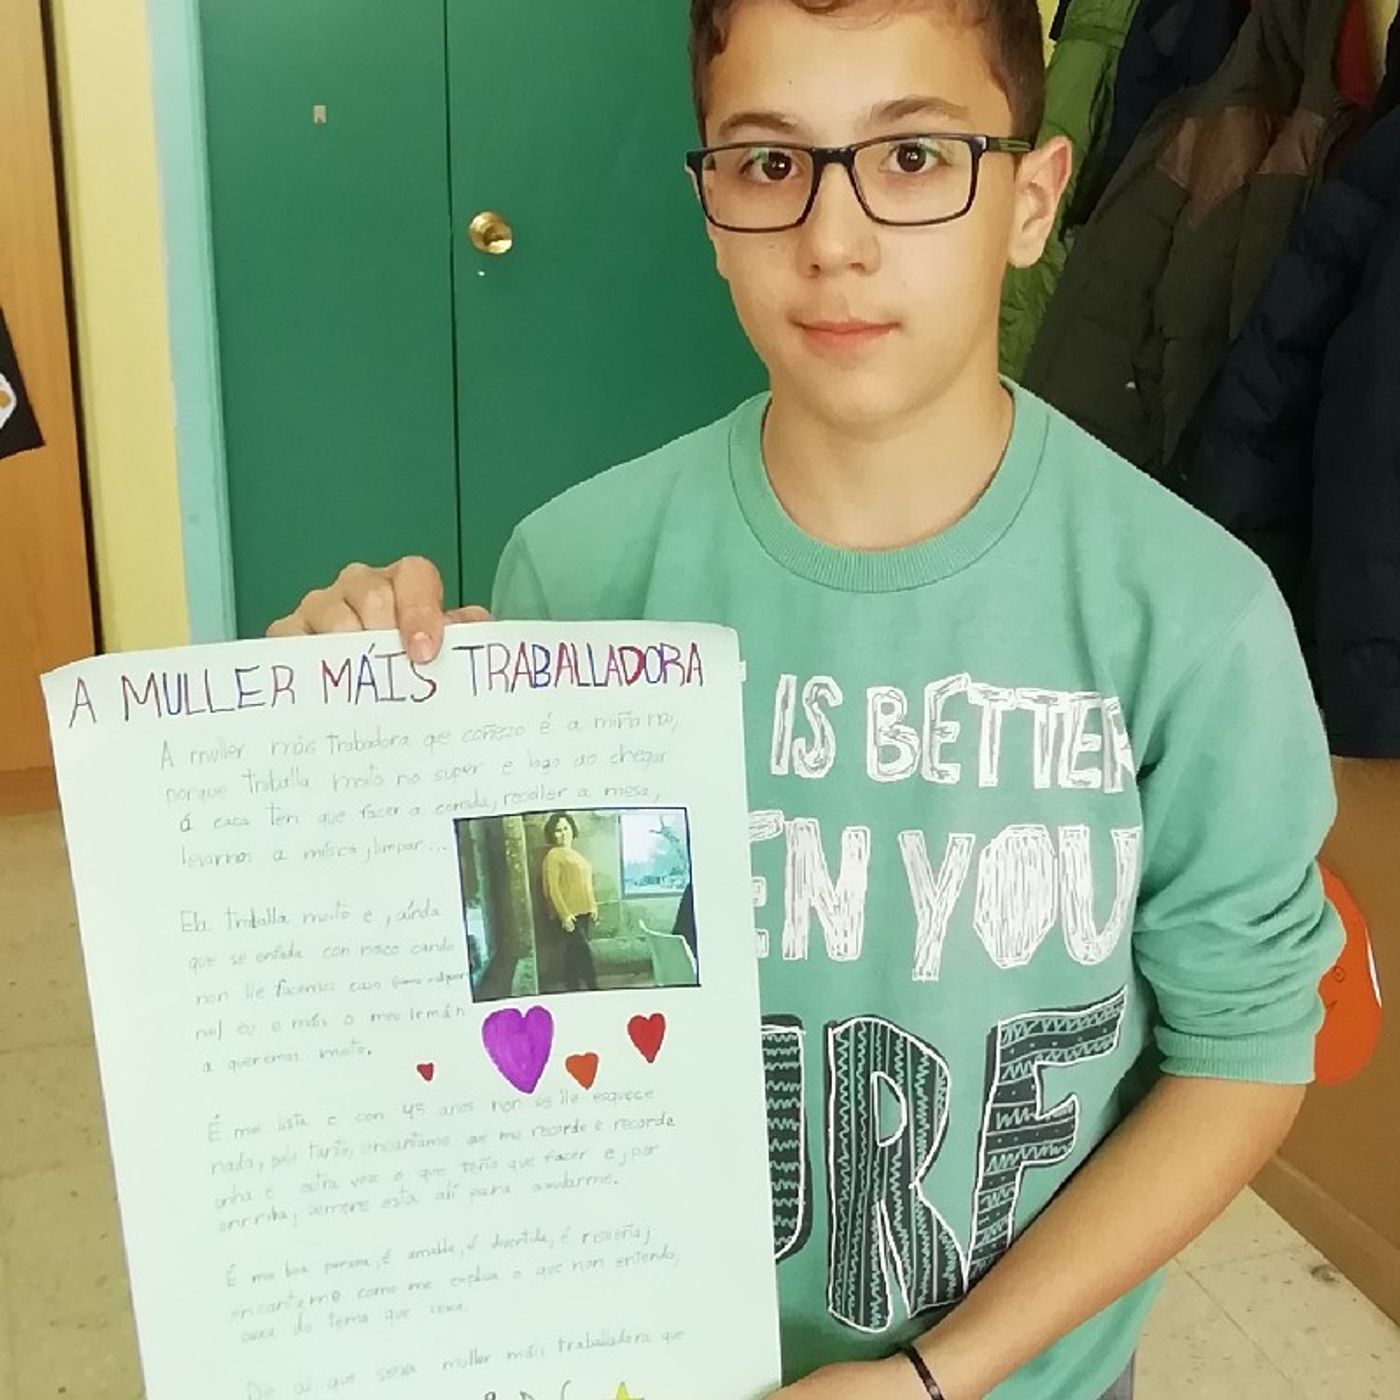 A MULLER MÁIS TRABALLADORA
A muller máis trabadora que coñezo é a miña nai,
porque traballa moito no super e logo ao chegar
á casa ten que facer a comida, recoller a mesa,
levarnos a música, limpar...
Ela traballa moito e, aínda
que se enfada con nosco cando
non lle facemos caso
nai) eu e máis o meu irmán
a queremos moito.
É moi lista e con 45 anos non se lle esquece
nada, polo tanto, encántame que me recorde e recorde
unha e outra vez o que teño que facer e, por
enrriba, sempre está alí para axudarme.
É moi boa persoa, é amable, é divertida, é risueña,
encántame como me explica o que non entendo,
do tema que sexa.
De aí que sexa muller máis traballadora que
IS BETTER
EN YOU
URF